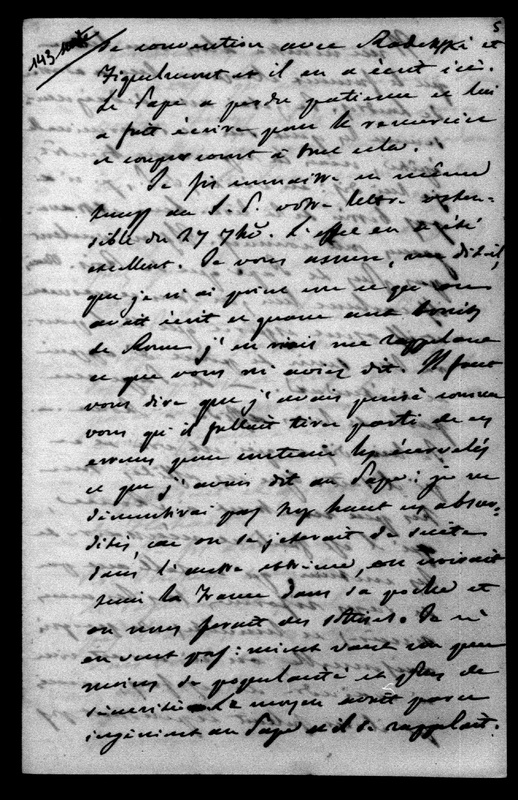 5
143 suite
de convention avec Radetzki et
Fiquelmont et il en a écrit ici.
Le Pape a perdu patience et lui
a fait écrire pour le remercier
et couper court à tout cela.
Je fis connaitre en même
temps au S. P. votre lettre osten-
sible du 27 7bre. L'effet en a été
excellent. Je vous assure, me dit-il,
que je n'ai point cru ce qu'on
avait écrit et quant aux bruits
de Rome j'en riais me rappelant
ce que vous m'aviez dit. Il faut
vous dire que j'avais pensé comme
vous qu'il fallait tirer parti de ces
erreurs pour
ce que j'avais dit au Pape: je ne
démentirai pas trop haut ces absur-
dités, car on se jeterait de suite
dans l'autre extrême, on croirait
tenir la France dans sa poche et
on nous ferait des sottises. Je n'
en veut pas: mieux vaut un peu
moins de popularité et plus de
sécurité. Le moyen avait paru
ingénieux au Pape et il se rappelait.